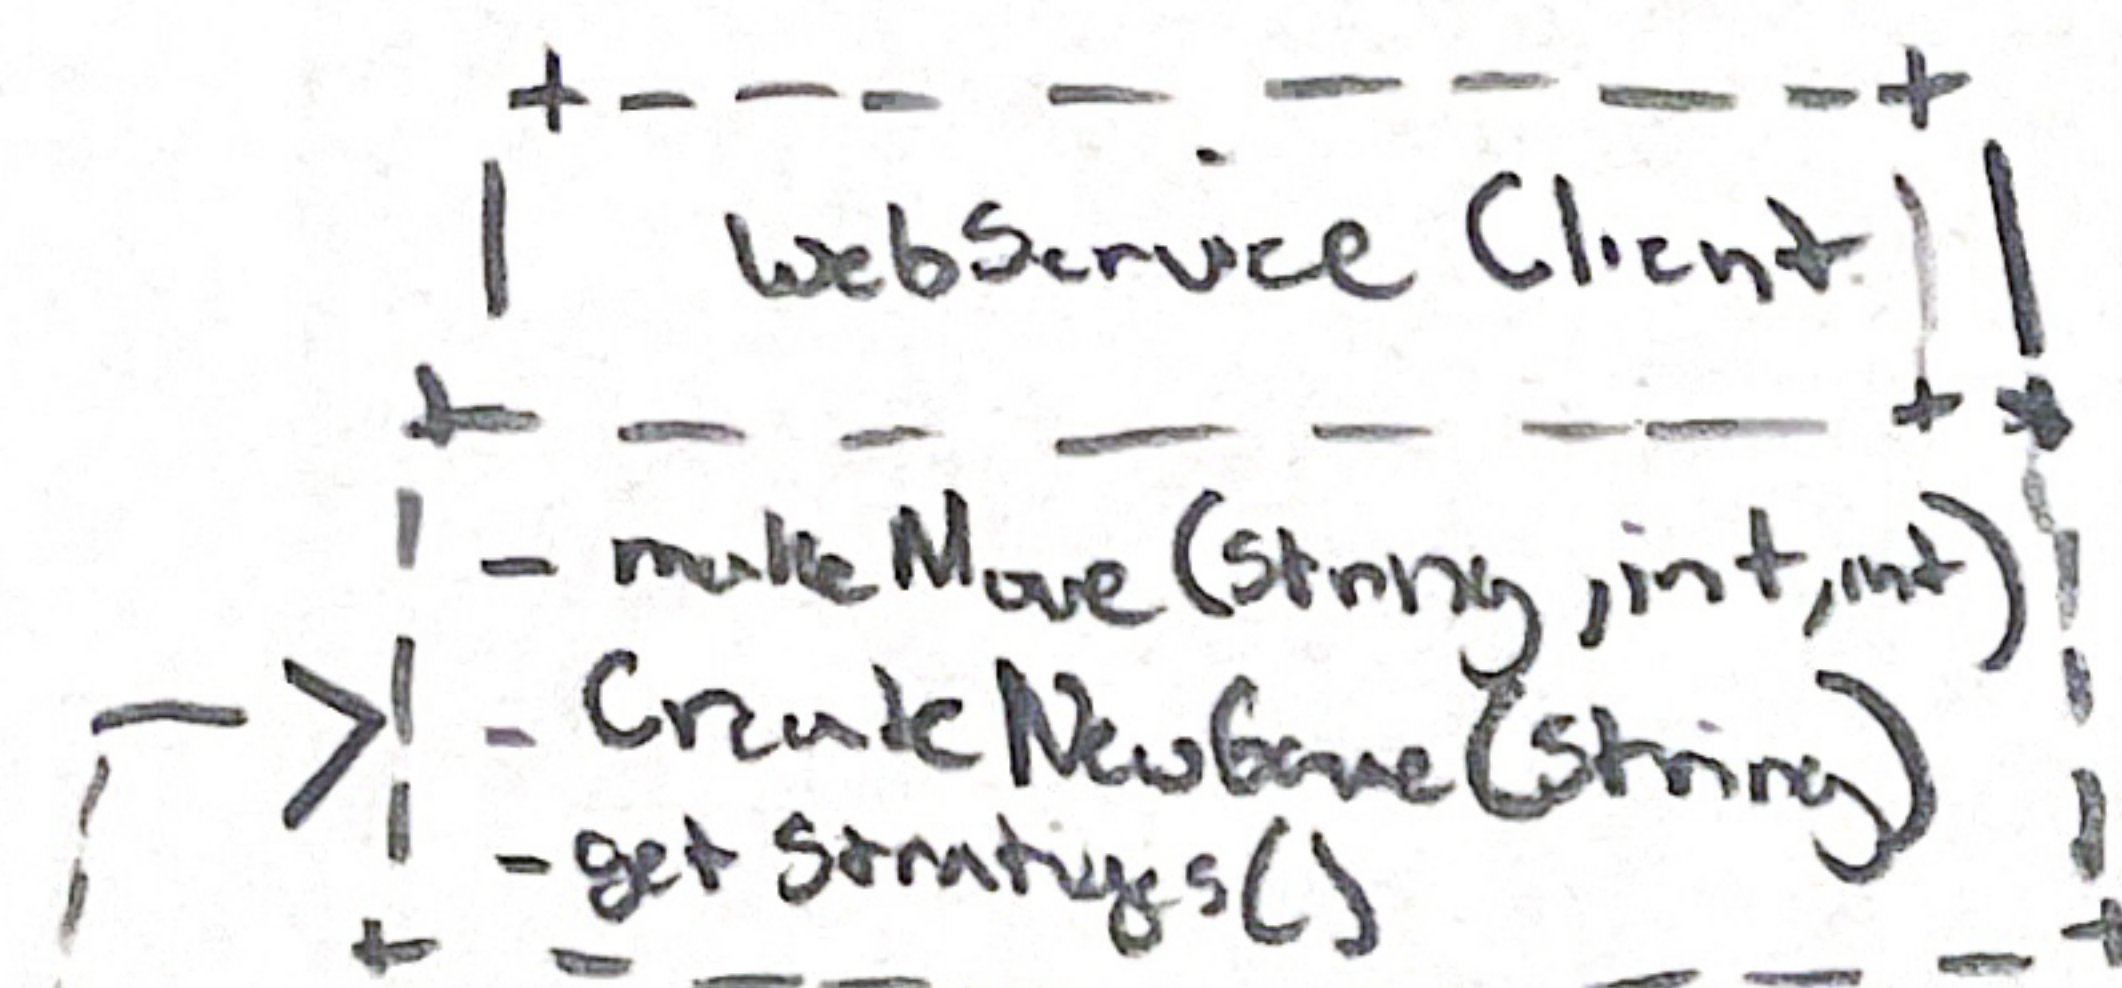 WebService Client
- makeMove(string, int, int)
- CreateNewGame(string)
- getStratiges()